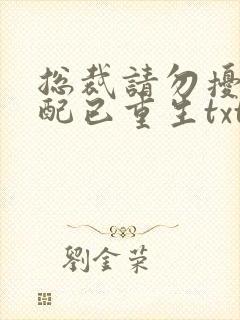 总裁請勿擾
配已重生txt
劉金荣